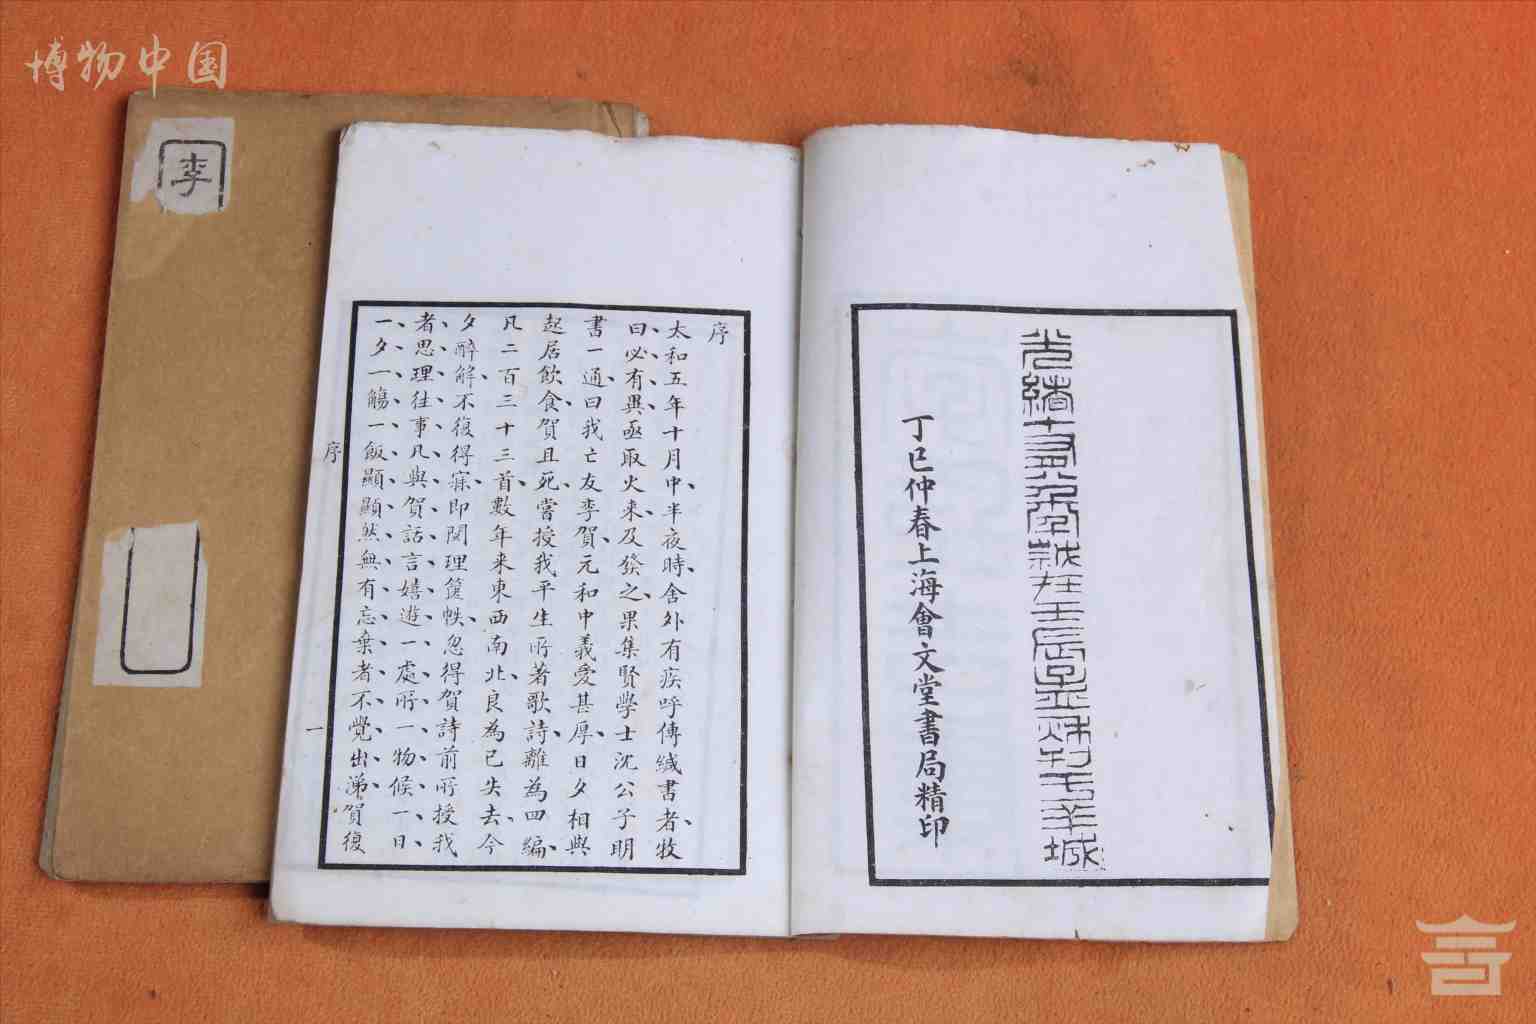 博物中国
李
光緒十有八年歲在壬辰孟秋刊于羊城
丁巳仲春上海會文堂書局精印
序
太和五年十月中、半夜時、舍外有疾呼傳緘書者、牧
曰、必有異、亟取火来、及發之、果集賢學士沈公子明
書一通、曰我亡友李賀、元和中義愛甚厚、日夕相與
起居飲食、賀且死、嘗授我平生所著歌詩、離為四編、
凡二百三十三首、數年来東西南北、良為已失去、今
夕醉解、不復得寐、即閱理篋帙、忽得賀詩前所授我
者、思理往事、凡與賀話言嬉遊、一處所、一物候、一日
一夕、一觴一飯、顯顯然無有忘棄者、不覺出涕、賀復
序
一